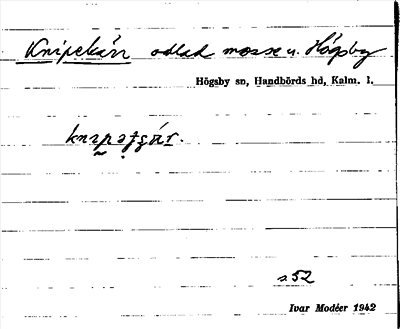 Knipekärr odlad mosse u. Högsby
Högsby sn, Handbörds hd, Kalm. l.
s. 52
Ivar Modéer 1942